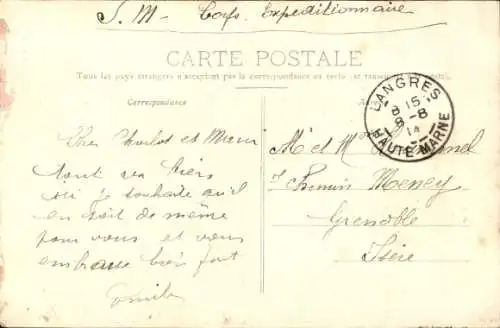 S. M - Corps Expeditionnaire
CARTE POSTALE
Tous les pays étrangers n'acceptent pas la correspondance au recto
Correspondance
LANGRES
8 15
8-8
14
HAUTE-MARNE
Cher Charlot et
tout va bien
ici je souhaite qu'il
en soit de même
pour vous et vous
embrasse bien fort
Emile
M et Mme
Chemin Meney
Grenoble
Isère